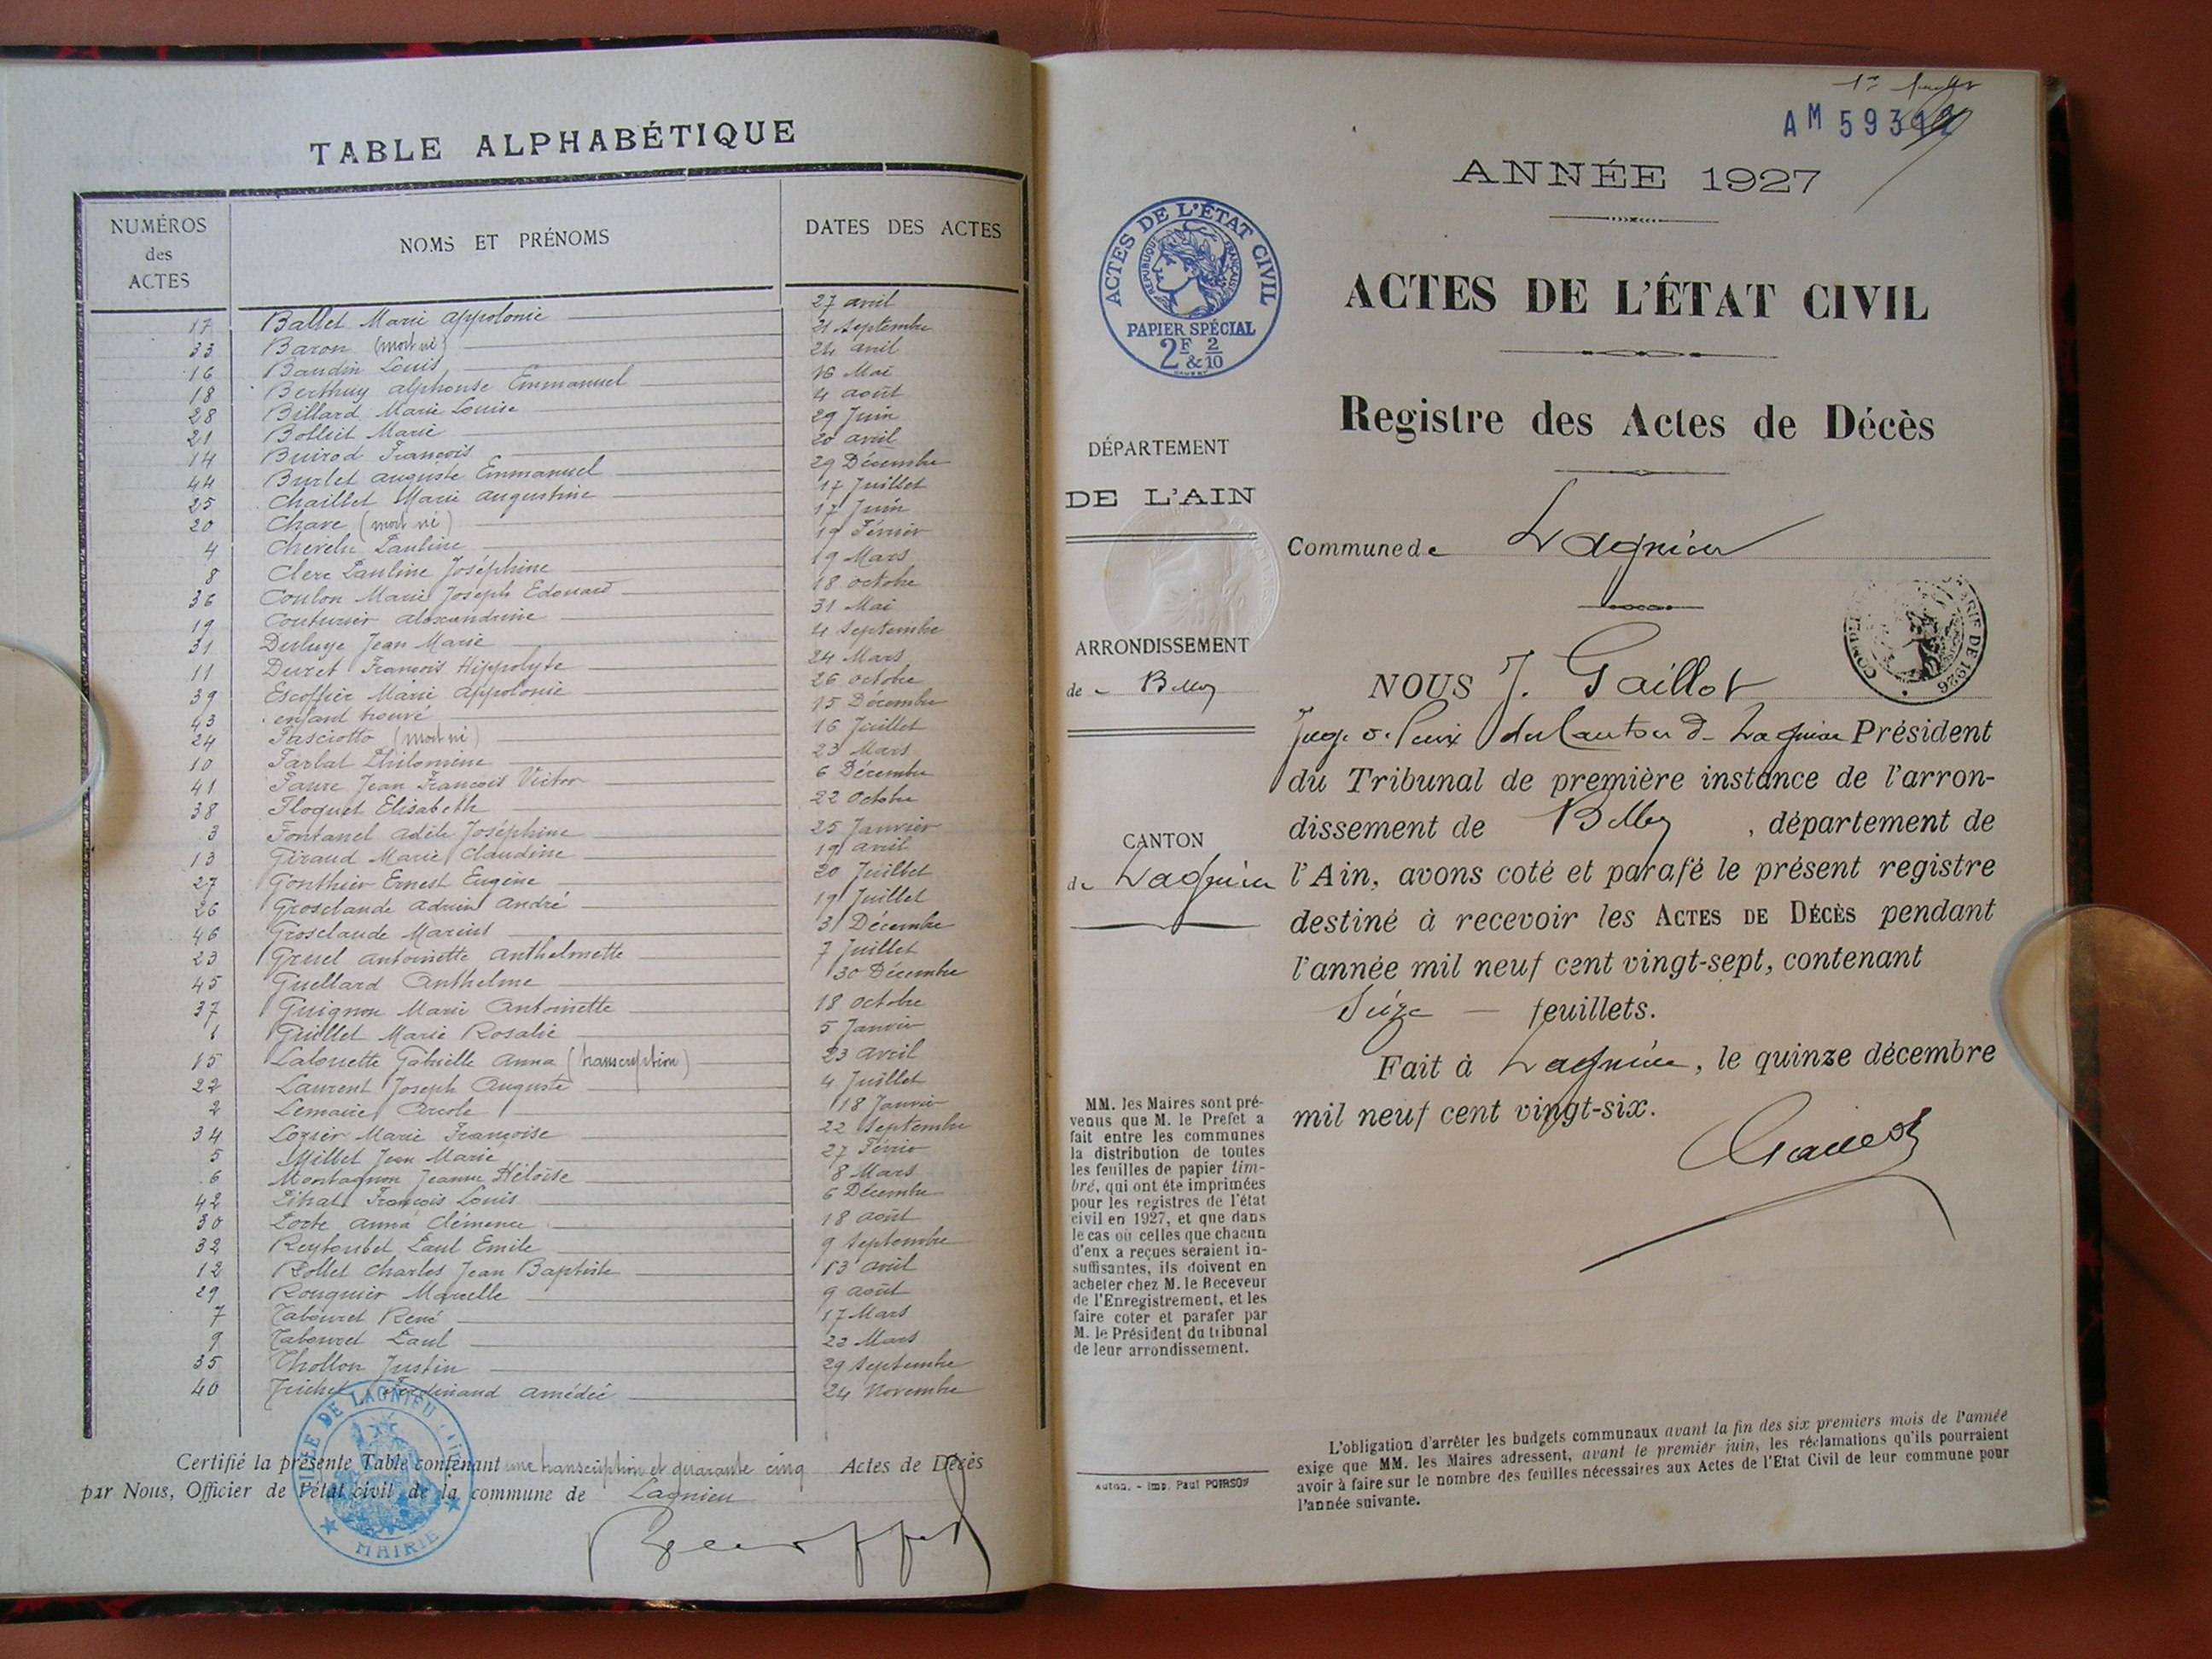 TABLE ALPHABÉTIQUE
NUMÉROS des ACTES
NOMS ET PRÉNOMS
DATES DES ACTES
17 Ballet Marie Appolonie 27 avril
33 Baron (mort né) 21 Septembre
16 Baudin Louis 24 avril
18 Berthuy alphonse Emmanuel 16 Mai
28 Billard Marie Louise 4 août
21 Bolliet Marie 29 Juin
14 Buirod François 20 avril
44 Burlet auguste Emmanuel 29 Décembre
25 Chaillet Marie augustine 17 Juillet
20 Chave (mort né) 17 Juin
4 Chevelu Pauline 19 Février
8 Clerc Pauline Joséphine 19 Mars
36 Coulon Marie Joseph Edouard 18 octobre
19 Couturier alexandrine 31 Mai
31 Jean Marie 4 Septembre
11 Duret François Hippolyte 24 Mars
39 Escoffier Marie Appolonie 26 octobre
43 enfant trouvé 15 Décembre
24 Fasciotto (mort né) 16 Juillet
10 Farlat Philomène 23 Mars
41 Faure Jean François Victor 6 Décembre
38 Floquet Elisabeth 22 Octobre
3 Fontanel adèle Joséphine 25 Janvier
13 Giraud Marie Claudine 19 avril
27 Gonthier Ernest Eugène 20 Juillet
26 Grosclaude adrien andré 19 Juillet
46 Grosclaude Marius 31 Décembre
23 Gruel antoinette anthelmette 7 Juillet
45 Guellard Anthelme 30 Décembre
37 Guignon Marie Antoinette 18 octobre
1 Guillet Marie Rosalie 5 Janvier
15 Lalouette Gabrielle Anna (transcription) 23 avril
22 Laurent Joseph Auguste 4 Juillet
2 Lemaire 18 Janvier
34 Lozier Marie Françoise 22 Septembre
5 Millet Jean Marie 27 Février
6 Montagnon Jeanne Héloïse 8 Mars
42 François Louis 6 Décembre
30 Porte anna Clémence 18 août
32 Reyboubet Paul Emile 9 Septembre
12 Rollet Charles Jean Baptiste 13 avril
29 Rouquier Marcelle 9 août
7 Tabouret René 17 Mars
9 Tabouret Paul 23 Mars
35 Thollon Justin 29 Septembre
40 Ferdinand amédée 24 Novembre
Certifié la présente Table contenant une transcription et quarante cinq Actes de Décès
par Nous, Officier de l'état civil de la commune de Lagnieu
VILLE DE LAGNIEU
MAIRIE
AM 593
ANNÉE 1927
ACTES DE L'ÉTAT CIVIL
RÉPUBLIQUE FRANÇAISE
PAPIER SPÉCIAL
2F & 2/10
ACTES DE L'ÉTAT CIVIL
Registre des Actes de Décès
DÉPARTEMENT
DE L'AIN
ARRONDISSEMENT
de Belley
CANTON
de Lagnieu
MM. les Maires sont pré-
venus que M. le Préfet a
fait entre les communes
la distribution de toutes
les feuilles de papier tim-
bré, qui ont été imprimées
pour les registres de l'état
civil en 1927, et que dans
le cas où celles que chacun
d'eux a reçues seraient in-
suffisantes, ils doivent en
acheter chez M. le Receveur
de l'Enregistrement, et les
faire coter et parafer par
M. le Président du tribunal
de leur arrondissement.
Imp. Paul
Commune de Lagnieu
NOUS J. Gaillot
Juge de Paix du Canton de Lagnieu Président
du Tribunal de première instance de l'arron-
dissement de Belley, département de
l'Ain, avons coté et parafé le présent registre
destiné à recevoir les ACTES DE DÉCÈS pendant
l'année mil neuf cent vingt-sept, contenant
Seize feuillets.
Fait à Lagnieu, le quinze décembre
mil neuf cent vingt-six.
L'obligation d'arrêter les budgets communaux avant la fin des six premiers mois de l'année
exige que MM. les Maires adressent, avant le premier juin, les réclamations qu'ils pourraient
avoir à faire sur le nombre des feuilles nécessaires aux Actes de l'Etat Civil de leur commune pour
l'année suivante.